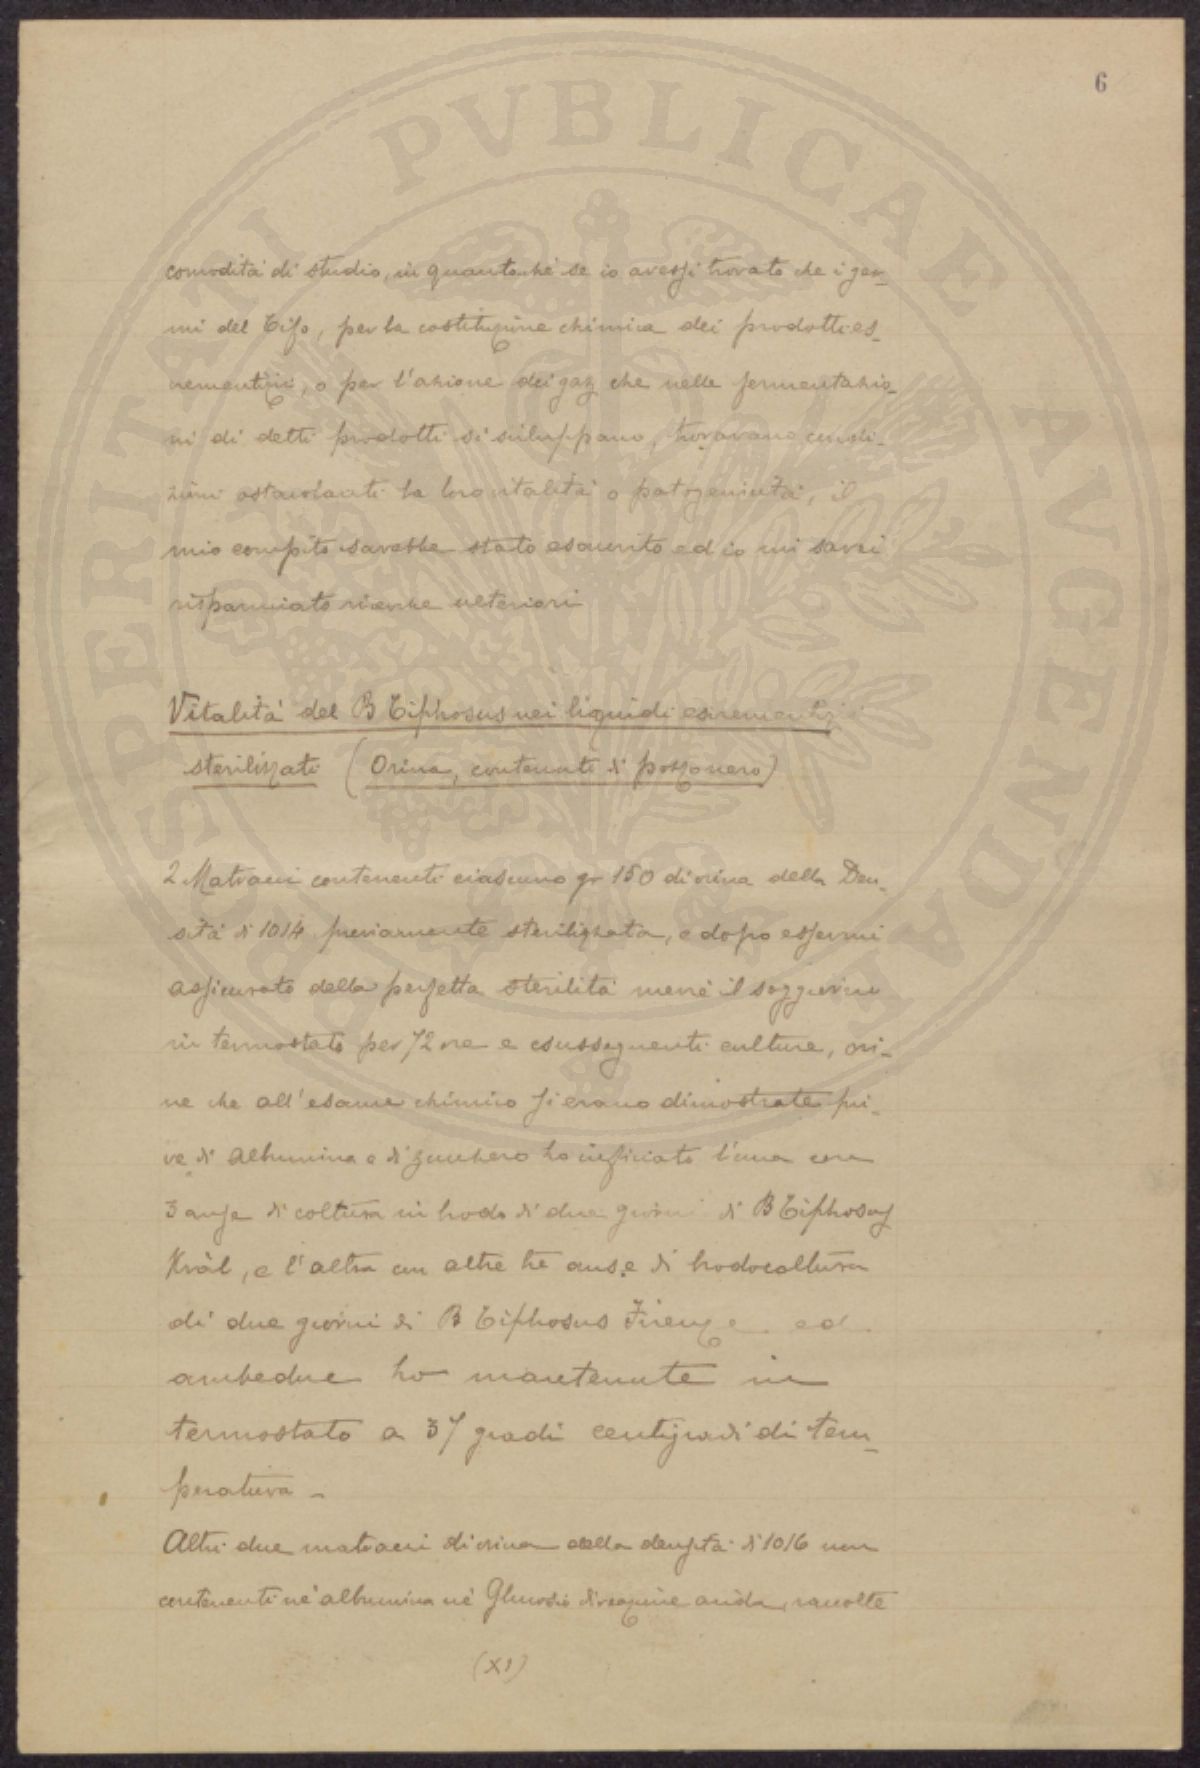 6
PROSPERITATI PVBLICAE AVGENDAE
comodità di studio, in quantochè se io avessi trovato che i ger-
mi del Tifo, per la costituzione chimica dei prodotti es-
crementizii, o per l'azione dei gaz che nelle fermentazio-
ni di detti prodotti si sviluppano, trovavano condi-
zioni ostacolanti la loro vitalità o patogenicità, il
mio compito sarebbe stato esaurito ed io mi sarei
risparmiato ricerche ulteriori
Vitalità del B Tiphosus nei liquidi escrementizi
sterilizzati (Orina, contenuti di pozzo nero)
2 Matracci contenenti ciascuno gr 150 di orina della Den-
sità di 1014 previamente sterilizzata, e dopo essermi
assicurato della perfetta sterilità mercè il soggiorno
in termostato per 72 ore e susseguenti culture, ori-
ne che all'esame chimico si erano dimostrate pri-
ve di albumina e di zucchero ho inficiato l'una con
3 anse di coltura in brodo di due giorni di B Tiphosus
Kràl, e l'altra con altre tre anse di brodocoltura
di due giorni di B Tiphosus Firenze ed
ambedue ho mantenute in
termostato a 37 gradi centigradi di tem-
peratura -
Altri due matracci di orina della densità di 1016 non
contenenti nè albumina nè Glucosio di reazione acida, raccolte
(XI)